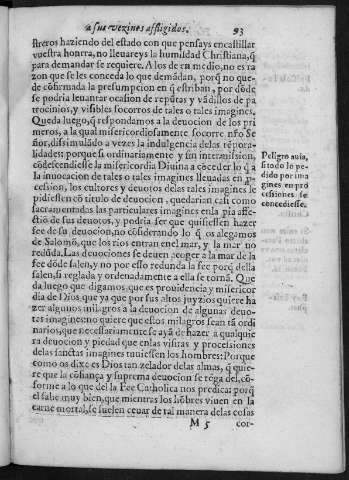 a sus vezinos affligidos. 93
streros haziendo del estado con que pensays encastillar
vuestra honrra, no lleuareys la humildad Christiana, q̃
para demandar se requiere. A los de en medio, no es ra
zon que se les conceda lo que demãdan, porq̃ no que-
de cõfirmada la presumpcion en q̃ estriban, por dõde
se podria leuantar ocasion de reputas y vãdillos de pa
trocinios, y visibles socorros de tales o tales imagines.
Queda luego, q̃ respondamos a la deuocion de los pri
meros, a la qual misericordiosamente socorre nr̃o Se
ñor, dissimulãdo a vezes la indulgencia delas tẽpora-
lidades: porque si ordinariamente y sin intermission,
cõdescendiesse la misericordia Diuina a cõceder lo q̃ a
la inuocacion de tales o tales imagines lleuadas en p̃
cession, los cultores y deuotos delas tales imagines le
pidiessen cõ titulo de deuocion, quedarian casi como
sacramentadas las particulares imagines enla pia affe-
ctiõ de sus deuotos, y por assi ser que quisiessen hazer
fee de su deuocion, no cõsiderando lo q̃ os alegamos
de Salomõ, que los rios entran enel mar, y la mar no
redũda. Las deuociones se deuen acoger a la mar de la
fee dõde salen, y no por esso redunda la fee porq̃ della
salen, si reglada y ordenadamente a ella se tornã. Que
da luego que digamos, que es prouidencia y misericor
dia de Dios, que ya que por sus altos juyzios quiere ha
zer algunos milagros a la deuocion de algunas deuo-
tes imagines, no quiere que estos milagros sean tã ordi
narios, que necessariamente se ayã de hazer a qualquie
ra deuocion y piedad que enlas visitas y processiones
delas sanctas imagines tuuiessen los hombres: Porque
como os dixe es Dios tan zelador delas almas, q̃ quie-
re que la cõfiança y suprema deuocion se tẽga del, cõ-
forme a lo que del la Fee Catholica nos predica: porq̃
el sabe muy bien, que mientras los hõbres viuen en la
carne mortal, se suelen ceuar de tal manera delas cosas
M 5 cor-
Peligro auia,
si todo lo pe-
dido por ima
gines en pro
cessiones se
concediesse.